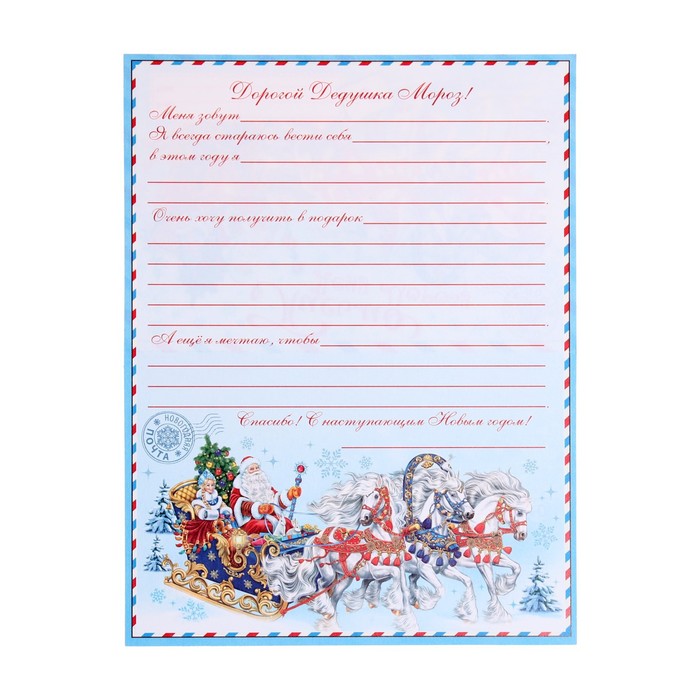 Дорогой Дедушка Мороз!
Меня зовут
Я всегда стараюсь вести себя
в этом году я
Очень хочу получить в подарок
А ещё я мечтаю, чтобы
Спасибо! С наступающим Новым годом!
НОВОГОДНЯЯ
ПОЧТА